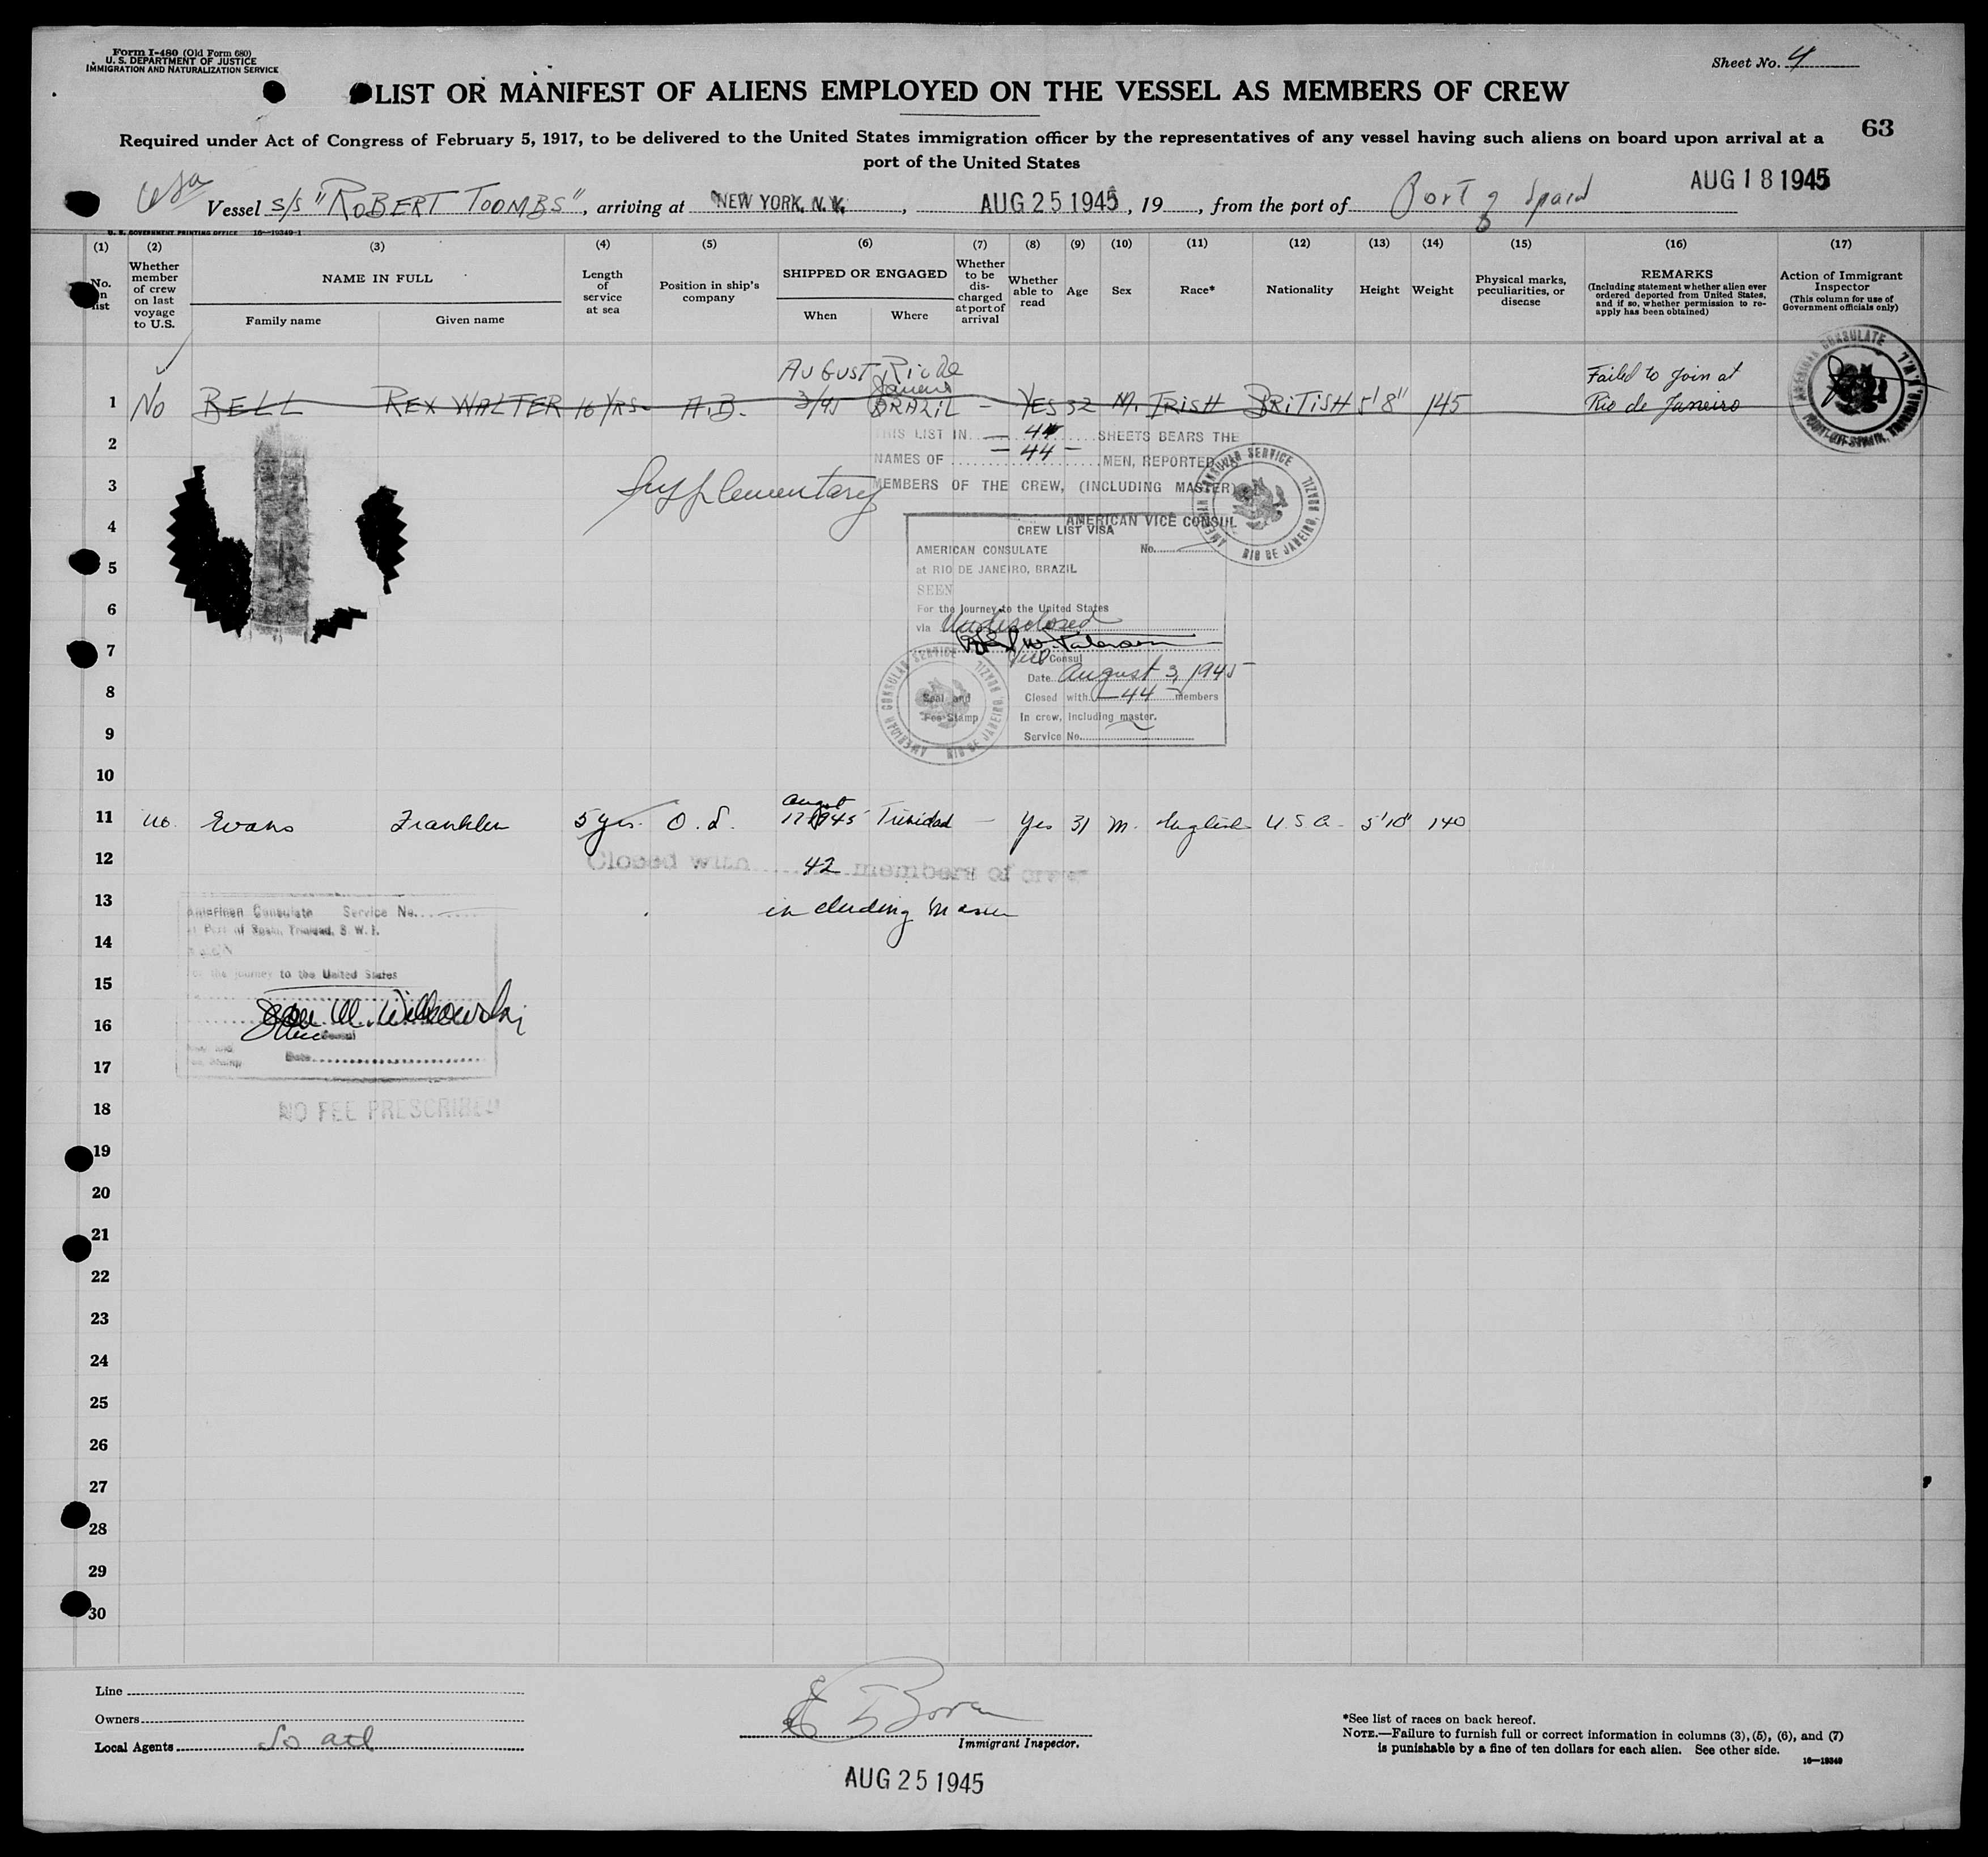 Form I-480 (Old Form 680)
U. S. DEPARTMENT OF JUSTICE
IMMIGRATION AND NATURALIZATION SERVICE
Sheet No. 4
LIST OR MANIFEST OF ALIENS EMPLOYED ON THE VESSEL AS MEMBERS OF CREW
63
Required under Act of Congress of February 5, 1917, to be delivered to the United States immigration officer by the representatives of any vessel having such aliens on board upon arrival at a
port of the United States
AUG 18 1945
Vessel S/S "ROBERT TOOMBS", arriving at NEW YORK, N.Y., AUG 25 1945, 19, from the port of Port of Spain
U. S. GOVERNMENT PRINTING OFFICE 16—19349-1
(1) (2) (3) (4) (5) (6) (7) (8) (9) (10) (11) (12) (13) (14) (15) (16) (17)
No. on list
Whether member of crew on last voyage to U.S.
NAME IN FULL
Family name
Given name
Length of service at sea
Position in ship's company
SHIPPED OR ENGAGED
When
Where
Whether to be discharged at port of arrival
Whether able to read
Age
Sex
Race*
Nationality
Height
Weight
Physical marks, peculiarities, or disease
REMARKS
(Including statement whether alien ever ordered deported from United States, and if so, whether permission to reapply has been obtained)
Action of Immigrant Inspector
(This column for use of Government officials only)
AMERICAN CONSULATE
PORT-OF-SPAIN, TRINIDAD,
AUGUST Rio de Janeiro Failed to join at
1 No BELL REX WALTER 16 YRS. A.B. 3/45 BRAZIL - YES 32 M. IRISH BRITISH 5'8" 145 Rio de Janeiro
2
THIS LIST IN 44 SHEETS BEARS THE
NAMES OF — 44 — MEN, REPORTED
3
Supplementary
MEMBERS OF THE CREW, (INCLUDING MASTER)
AMERICAN VICE CONSUL
AMERICAN CONSULAR SERVICE
RIO DE JANEIRO, BRAZIL
4
CREW LIST VISA
AMERICAN CONSULATE No.
5
at RIO DE JANEIRO, BRAZIL
SEEN
6
For the Journey to the United States
via Undisclosed
7
Vice Consul
Date August 3, 1945
8
Closed with —44— members
Seal and
Fee Stamp
In crew, including master.
9
Service No.
AMERICAN CONSULAR SERVICE
RIO DE JANEIRO, BRAZIL
10
August
11 No. Evans Franklin 5 yrs. O.S. 17 1945 Trinidad — Yes 31 M. English U.S.A. 5'10" 140
12
Closed with 42 members of crew
13
including Master
American Consulate Service No.
at Port of Spain, Trinidad, B. W. I.
14
for the journey to the United States
15
16
Vice Consul
Date
17
18
NO FEE PRESCRIBED
19
20
21
22
23
24
25
26
27
28
29
30
Line
Owners
Local Agents So Atl
Immigrant Inspector.
AUG 25 1945
*See list of races on back hereof.
NOTE.—Failure to furnish full or correct information in columns (3), (5), (6), and (7)
is punishable by a fine of ten dollars for each alien. See other side.
16—19349